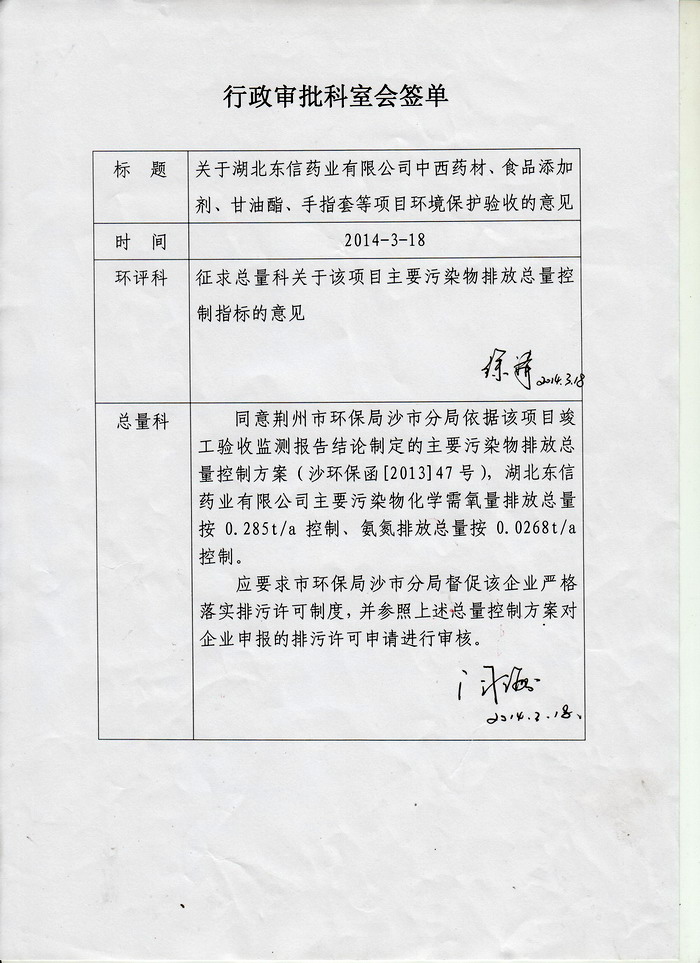 行政审批科室会签单
标 题
关于湖北东信药业有限公司中西药材、食品添加
剂、甘油酯、手指套等项目环境保护验收的意见
时 间
2014-3-18
环评科
征求总量科关于该项目主要污染物排放总量控
制指标的意见
2014.3.18
总量科
同意荆州市环保局沙市分局依据该项目竣
工验收监测报告结论制定的主要污染物排放总
量控制方案（沙环保函[2013]47号），湖北东信
药业有限公司主要污染物化学需氧量排放总量
按 0.285t/a 控制、氨氮排放总量按 0.0268t/a
控制。
应要求市环保局沙市分局督促该企业严格
落实排污许可制度，并参照上述总量控制方案对
企业申报的排污许可申请进行审核。